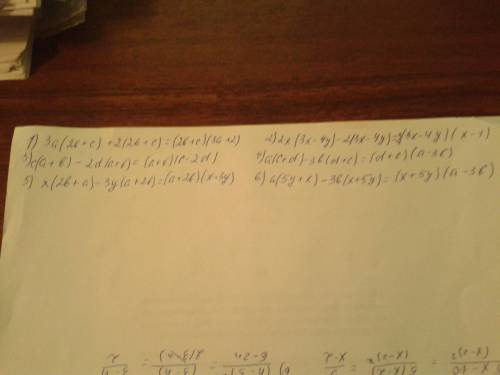 1) 3a(2b+c)+2(2b+c)=(2b+c)(3a+2) 2) 2x(3x-4y)-2(3x-4y)=2(3x-4y)(x-1)
3) c(a+b)-2d(a+b)=(a+b)(c-2d) 4) a(c+d)-3b(d+c)=(d+c)(a-3b)
5) x(2b+a)-3y(a+2b)=(a+2b)(x-3y) 6) a(5y+x)-3b(x+5y)=(x+5y)(a-3b)